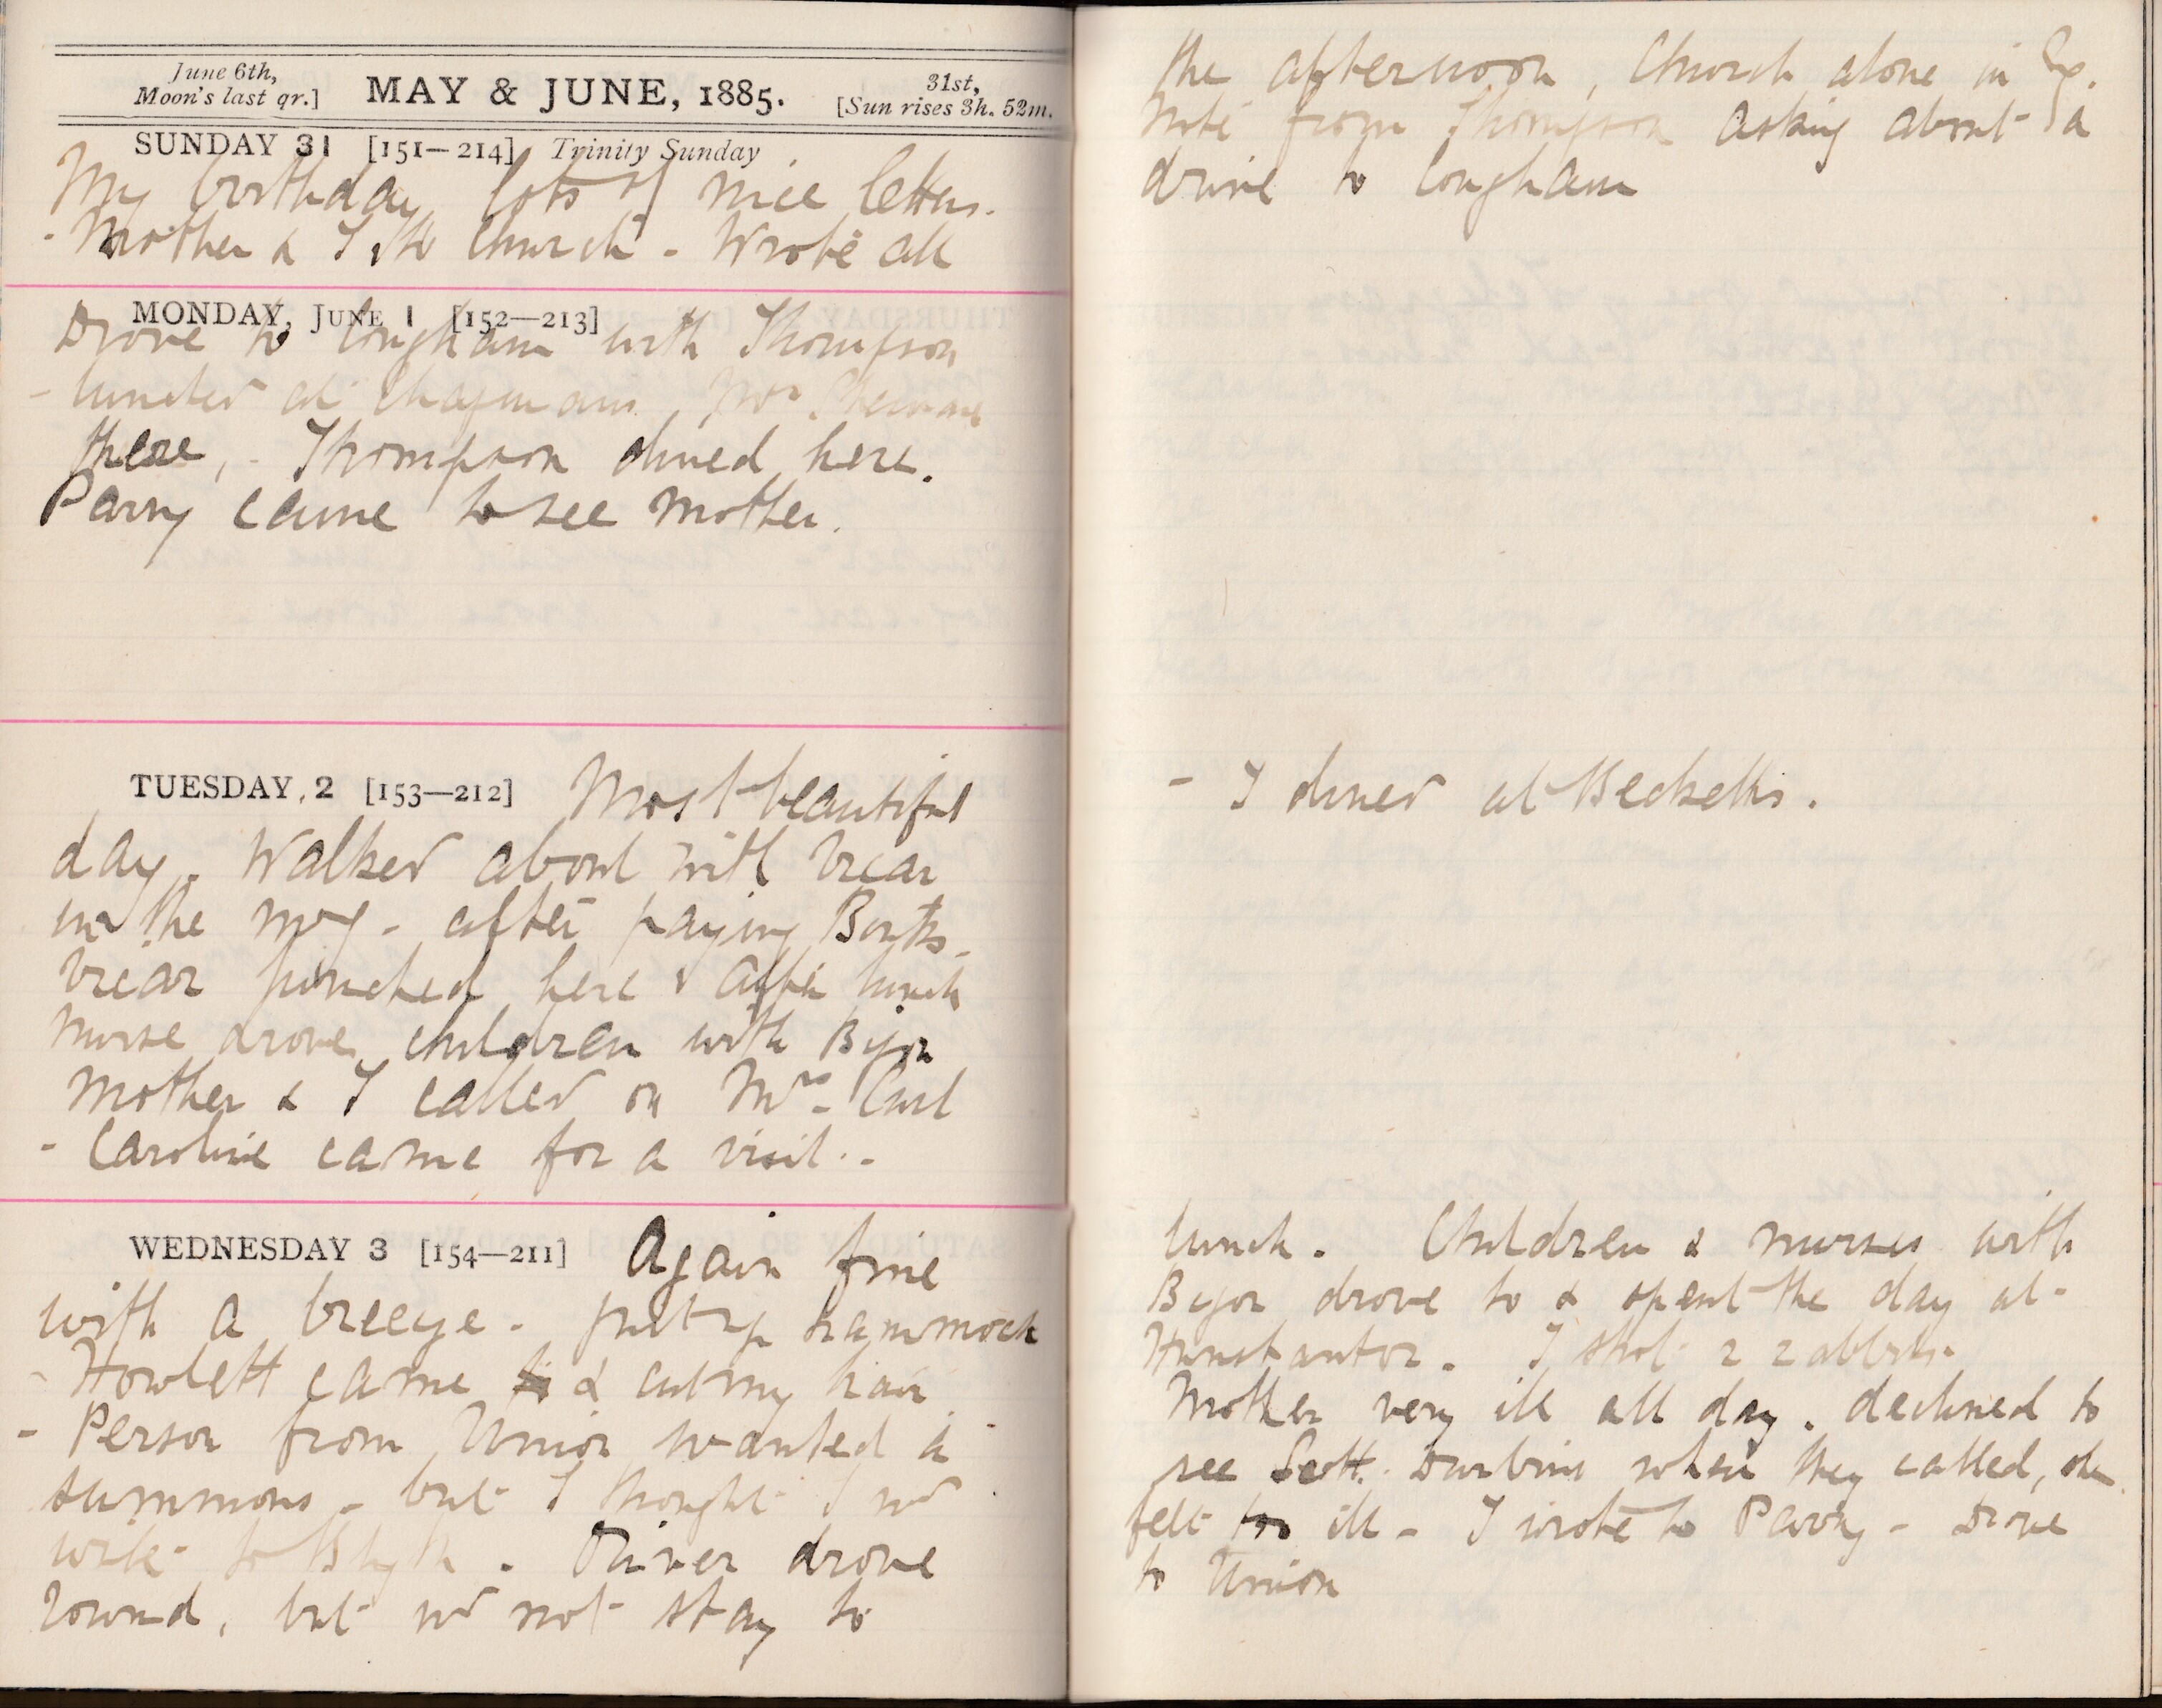 June 6th,
Moon's last qr.]
MAY & JUNE, 1885.
31st,
[Sun rises 3h. 52m.
SUNDAY 31 [151—214] Trinity Sunday
My birthday lots of nice letters.
- Mother & I to Church - Wrote all
MONDAY, JUNE 1 [152—213]
Drove to Longham with Thompson
- lunched at Chapmans, Mrs.
there, - Thompson dined here.
Parry came to see Mother.
TUESDAY, 2 [153—212] Most beautiful
day. Walked about with Vicar
in the mg - after paying Books -
Vicar lunched here & after lunch
Nurse drove children with Bijou
Mother & I called on Mrs. Curl
- Caroline came for a visit. -
WEDNESDAY 3 [154—211] Again fine
with a breeze - put up hammock
- Howlett came & cut my hair
- Person from Union wanted a
summons - but I thought I wd
write to Blyth. Oliver drove
round, but wd not stay to
the afternoon, Church alone in Eg.
Note from Thompson asking about a
drive to Longham
- I dined at Becketts.
lunch. Children & nurses with
Bijou drove to & spent the day at
Hunstanton. I shot 2 rabbits.
Mother very ill all day. declined to
see Scott. Durbins when they called, she
felt too ill - I wrote to Parry - Drove
to Union